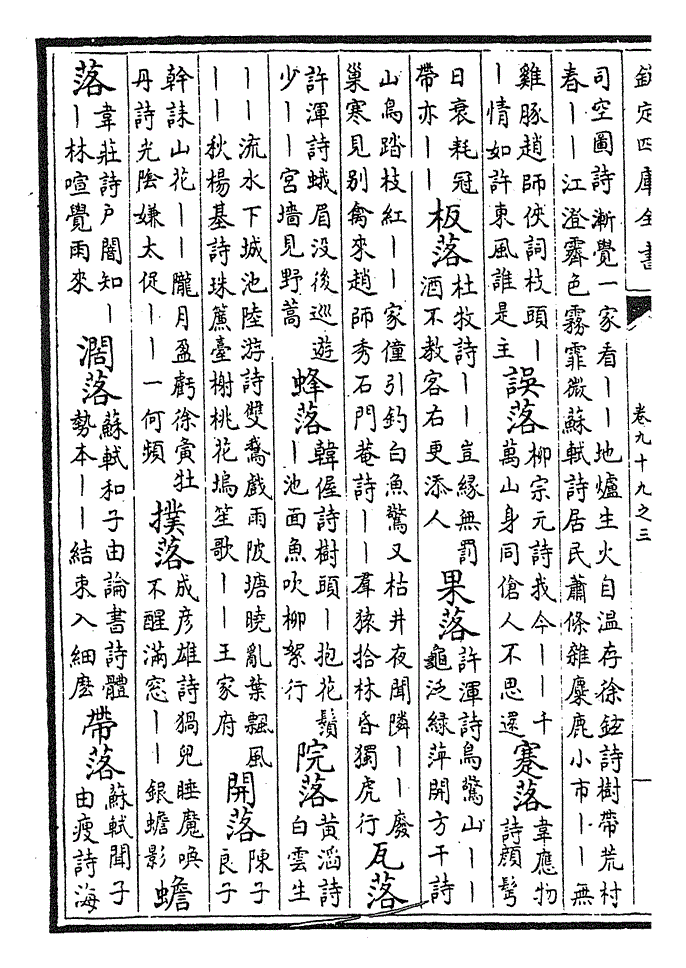 欽定四庫全書 卷九十九之三
司空圖詩漸覺一家看丨丨地爐生火自温存徐鉉詩樹帶荒村
春丨丨江澄霽色霧霏微蘇軾詩居民蕭條雜麋鹿小市丨丨無
雞豚趙師俠詞枝頭丨
丨情如許東風誰是主
誤落
柳宗元詩我今丨丨千
萬山身同傖人不思還
蹇落
韋應物
詩顔髩
日衰耗冠
帶亦丨丨
板落
杜牧詩丨丨豈緣無罰
酒不教客右更添人
果落
許渾詩鳥驚山丨丨
龜泛緑萍開方干詩
山鳥踏枝紅丨丨家僮引釣白魚驚又枯井夜聞隣丨丨廢
巢寒見别禽來趙師秀石門菴詩丨丨羣猿拾林昏獨虎行
瓦落
許渾詩蛾眉没後巡遊
少丨丨宮墻見野蒿
蜂落
韓偓詩樹頭丨抱花鬚
丨池面魚吹柳絮行
院落
黄滔詩
白雲生
丨丨流水下城池陸游詩雙鵞戲雨陂塘曉亂葉飄風
丨丨秋楊基詩珠簾臺榭桃花塢笙歌丨丨王家府
開落
陳子
良子
幹誄山花丨丨朧月盈虧徐夤牡
丹詩光陰嫌太促丨丨一何頻
撲落
成彦雄詩猧兒睡魘喚
不醒滿窓丨丨銀蟾影
蟾
落
韋莊詩戸闇知丨
丨林喧覺雨來
濶落
蘇軾和子由論書詩體
勢本丨丨結束入細麽
帶落
蘇軾聞子
由瘦詩海